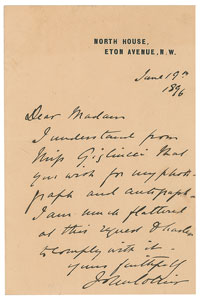 NORTH HOUSE,
ETON AVENUE, N.W.
June 19th
1896
Dear Madam
I understand from
Miss that
you wish for my photo-
graph and autograph -
I am much flattered
at this request & hasten
to comply with it -
yours faithfully